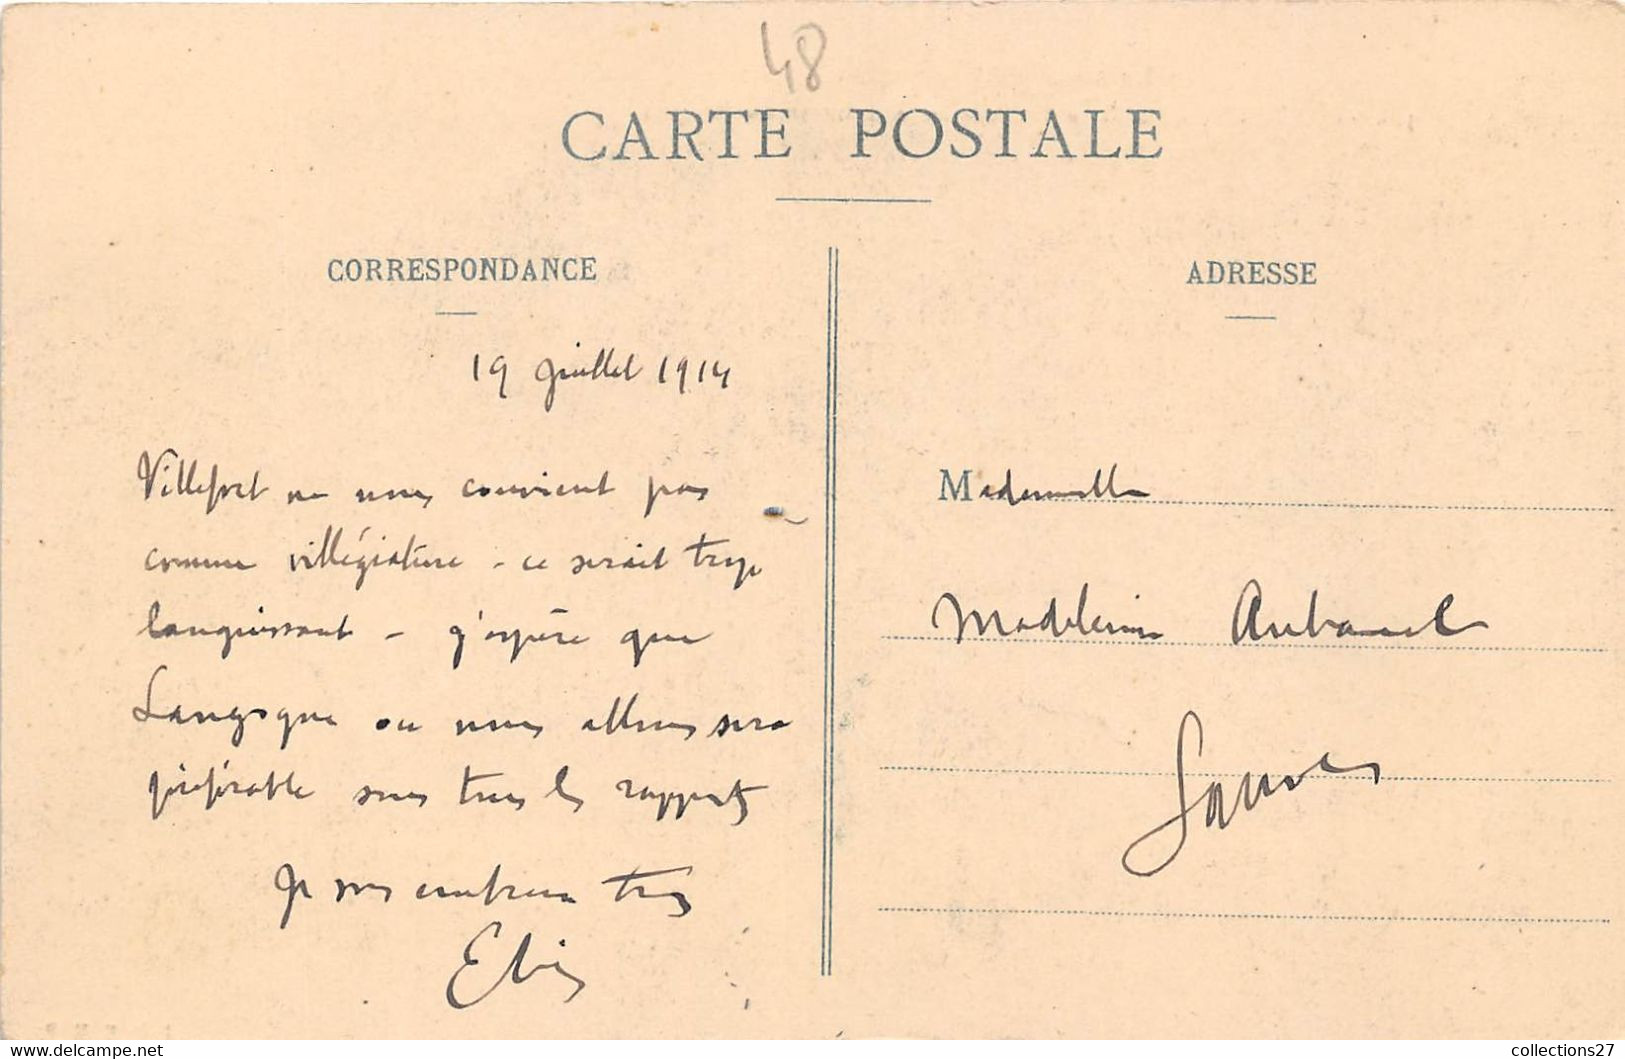 48
CARTE POSTALE
CORRESPONDANCE
19 Juillet 1914
Villefort ne nous convient pas
comme villégiature - ce serait trop
languissant - j'espère que
Langogne ou nous allons sera
préférable sous tous les rapports
Je vous embrasse tous
ADRESSE
Mademoiselle
Madeleine Aubanel
Sauves
collections27